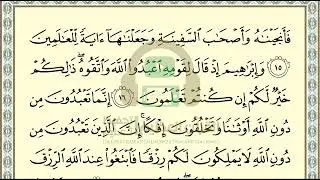 فَأَنجَيْنَٰهُ وَأَصْحَٰبَ ٱلسَّفِينَةِ وَجَعَلْنَٰهَآ ءَايَةً لِّلْعَٰلَمِينَ
﴿١٥﴾ وَإِبْرَٰهِيمَ إِذْ قَالَ لِقَوْمِهِ ٱعْبُدُوا۟ ٱللَّهَ وَٱتَّقُوهُ ۖ ذَٰلِكُمْ
خَيْرٌ لَّكُمْ إِن كُنتُمْ تَعْلَمُونَ ﴿١٦﴾ إِنَّمَا تَعْبُدُونَ مِن
دُونِ ٱللَّهِ أَوْثَٰنًا وَتَخْلُقُونَ إِفْكًا ۚ إِنَّ ٱلَّذِينَ تَعْبُدُونَ مِن
دُونِ ٱللَّهِ لَا يَمْلِكُونَ لَكُمْ رِزْقًا فَٱبْتَغُوا۟ عِندَ ٱللَّهِ ٱلرِّزْقَ